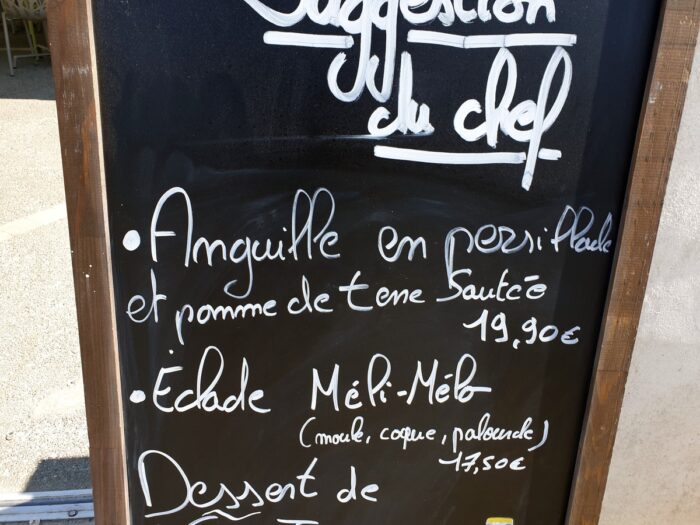 Suggestion
du chef
• Anguille en persillade
et pomme de terre Sautée
19,90€
• Éclade Méli-Mélo
(moule, coque, palourde)
17,50€
Dessert de